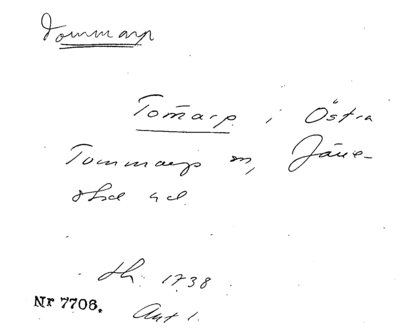 Tommarp
Tom̄arp i Östra
Tommarps sn, Järre-
stad hd
th. 1738.
Nr 7706. Ant 1.